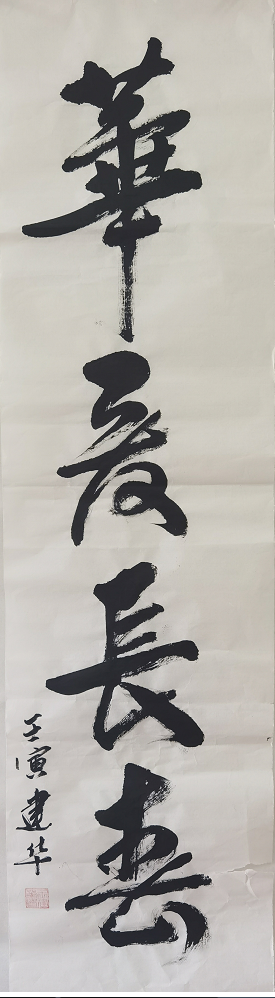 華夏長春
壬寅建华